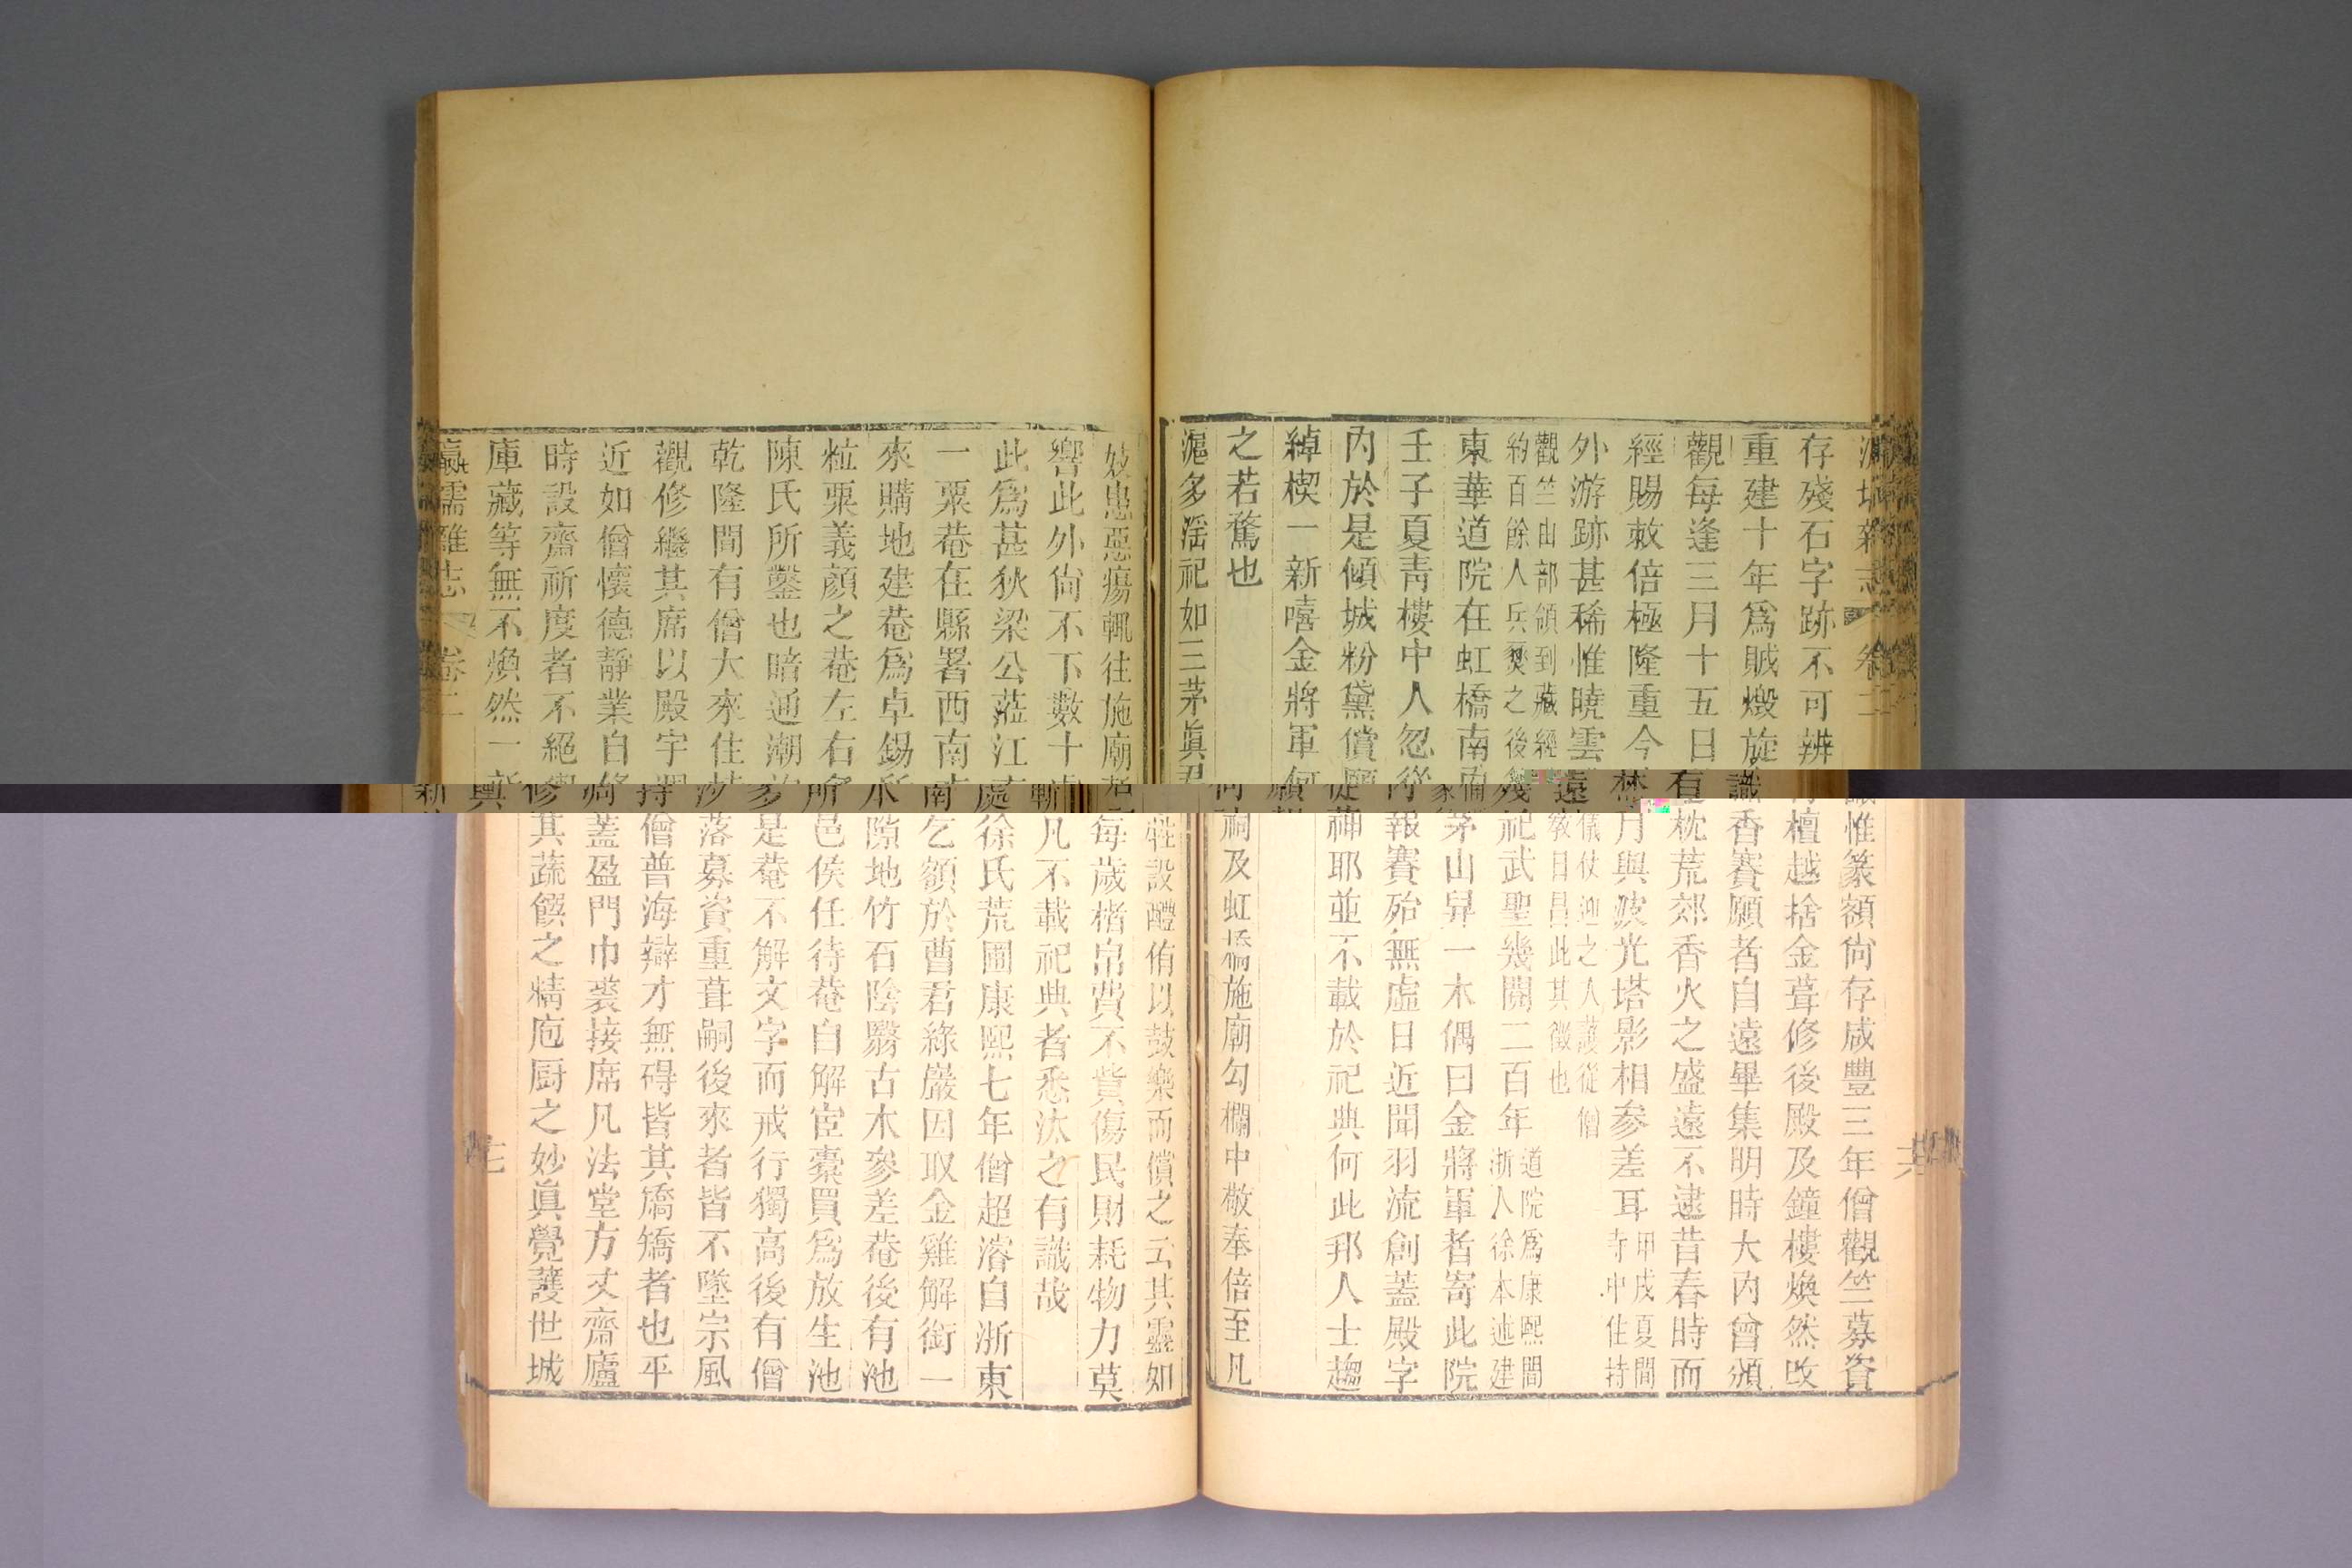 瀛壖雜志 卷二 六
存殘石字跡不可辨識惟篆額尚存咸豐三年僧觀竺募資
重建十年爲賊燬旋檀越捨金葺修後殿及鐘樓煥然改
觀每逢三月十五日識香賽願者自遠畢集明時大內曾頒
經賜敕倍極隆重今枕荒郊香火之盛遠不逮昔春時而
外游跡甚稀惟曉雲月與波光塔影相參差耳甲戌夏間寺中住持
觀竺山部領到藏經儀仗迎之人護從僧
約百餘人兵燹之後幾教日昌此其徵也
東華道院在虹橋南面祀武聖幾閱二百年道院爲康熙間浙人徐本述建
壬子夏靑樓中人忽從茅山舁一木偶曰金將軍者寄此院
內於是傾城粉黛償願報賽殆無虛日近聞羽流創蓋殿宇
綽楔一新嘻金將軍何神耶並不載於祀典何此邦人士趨
之若騖也
滬多淫祀如三茅眞君祠及虹橋施廟勾欄中敬奉倍至凡
妓患惡瘍輒往施廟牲設醴侑以鼓樂而償之云其靈如
響此外尙不下數十每歲楮帛費不貲傷民財耗物力莫
此爲甚狄梁公蒞江南凡不載祀典者悉汰之有識哉
一粟菴在縣署西南處徐氏荒圃康熙七年僧超濬自浙東
來購地建菴爲卓錫所乞額於曹君綠巖因取金雞解銜一
粒粟義顏之菴左右隙地竹石陰翳古木參差菴後有池
陳氏所鑿也暗通潮邑侯任待菴自解宦橐買爲放生池
乾隆間有僧大來住是菴不解文字而戒行獨高後有僧
觀修繼其席以殿宇落募資重葺嗣後來者皆不墜宗風
近如僧懷德靜業自持僧普海辯才無碍皆其矯矯者也平
時設齋祈度者不絕蓋盈門巾裘接席凡法堂方丈齋廬
庫藏等無不煥然一新其蔬饌之精庖厨之妙眞覺護世城
瀛壖雜志 卷二 七